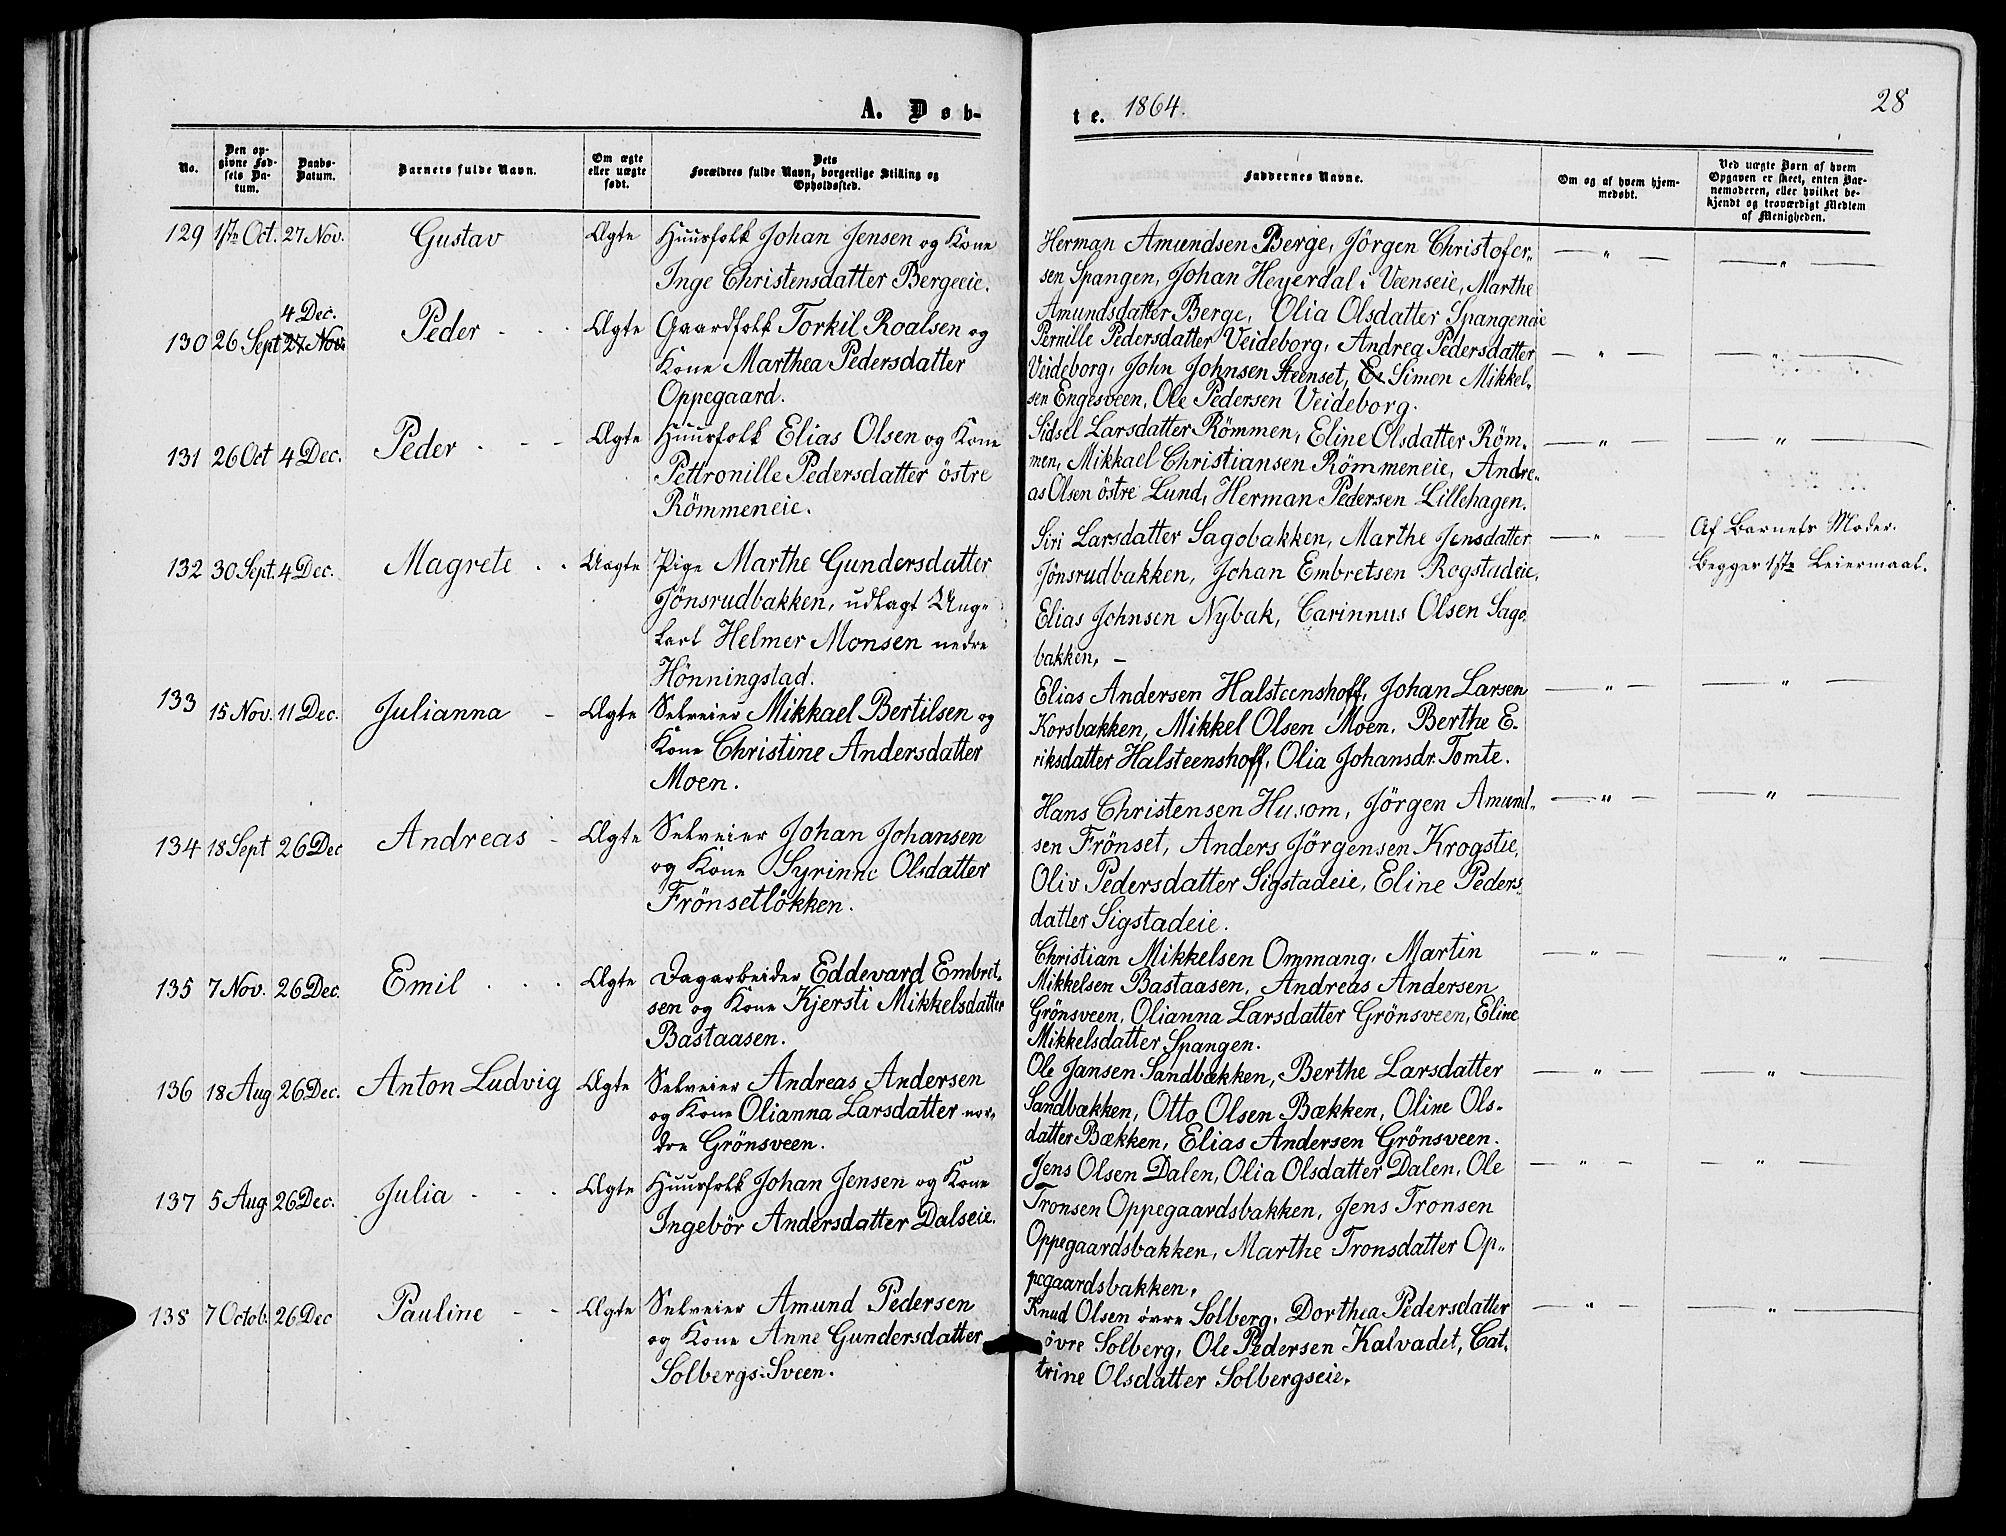 A. Døb-
No.
Den op-
givne Fød-
sels Da-
tum.
Daabs-
Datum.
Barnets fulde Navn.
Om ægte
eller uægte
født.
Dets
Forældres fulde Navn, borgerlige Stilling og
Opholdssted.
129 1ste Oct. 27 Nov. Gustav Ægte Huusfolk Johan Jensen og Kone
Inge Christensdatter Bergeeie.
4 Dec.
130 26 Sept 27 Nov. Peder Ægte Gaardfolk Torkil Roalsen og
Kone Marthea Pedersdatter
Oppegaard.
131 26 Oct 4 Dec. Peder Ægte Huusfolk Elias Olsen og Kone
Pettronille Pedersdatter östre
Römmeneie.
132 30 Sept. 4 Dec. Magrete Uægte Pige Marthe Gundersdatter
Jönsrudbakken, udlagt Unge-
karl Helmer Monsen nedre
Hönningstad.
133 15 Nov. 11 Dec. Julianna Ægte Selveier Mikkael Bertilsen og
Kone Christine Andersdatter
Moen.
134 18 Sept 26 Dec Andreas Ægte Selveier Johan Johansen
og Kone Syrinne Olsdatter
Frönsetlökken.
135 7 Nov. 26 Dec. Emil Ægte Dagarbeider Eddevard Embret-
sen og Kone Kjersti Mikkelsdatter
Bastaasen.
136 18 Aug 26 Dec. Anton Ludvig Ægte Selveier Andreas Andersen
og Kone Olianna Larsdatter nor-
dre Grönsveen.
137 5 Aug 26 Dec. Julia Ægte Huusfolk Johan Jensen og Kone
Ingebör Andersdatter Dalseie.
138 7 Octob. 26 Dec Pauline Ægte Selveier Amund Pedersen
og Kone Anne Gundersdatter
Solbergs-Sveen.
te. 1864.
28
Faddernes Navne.
Om og af hvem hjem-
medøbt.
Ved uægte Børn af hvem
Opgaven er skeet, enten Bar-
nemoderen, eller hvilket be-
kjendt og troværdigt Medlem
af Menigheden.
Herman Amundsen Berge, Jörgen Christofer-
sen Spangen, Johan Heyerdal i Veenseie, Marthe
Amundsdatter Berge, Olia Olsdatter Spangeneie
Pernille Pedersdatter Veideborg, Andrea Pedersdatter
Veideborg, John Johnsen Steenset, Simon Mikkel-
sen Engesveen, Ole Pedersen Veideborg.
Sidsel Larsdatter Römmen, Eline Olsdatter Röm-
men, Mikkael Christiansen Römmeneie, Andre-
as Olsen östre Lund, Herman Pedersen Lillehagen.
Siri Larsdatter Sagobakken, Marthe Jensdatter
Jönsrudbakken, Johan Embretsen Rogstadeie,
Elias Johnsen Nybak, Carinnus Olsen Sago-
bakken. –
Af Barnets Moder.
Begges 1ste Leiermaal.
Elias Andersen Halsteenshoff, Johan Larsen
Korsbakken, Mikkel Olsen Moen, Berthe E-
riksdatter Halsteenshoff, Olia Johansdr. Tomte.
Hans Christensen Husom, Jörgen Amund-
sen Frönset, Anders Jörgensen Krogstie,
Oliv Pedersdatter Sigstadeie, Eline Peders-
datter Sigstadeie.
Christian Mikkelsen Ommang, Martin
Mikkelsen Bastaasen, Andreas Andersen
Grönsveen, Olianna Larsdatter Grönsveen, Eline
Mikkelsdatter Spangen.
Ole Jansen Sandbækken, Berthe Larsdatter
Sandbækken, Otto Olsen Bækken, Oline Ols-
datter Bækken, Elias Andersen Grönsveen.
Jens Olsen Dalen, Olia Olsdatter Dalen, Ole
Tronsen Oppegaardsbakken, Jens Tronsen
Oppegaardsbakken, Marthe Tronsdatter Op-
pegaardsbakken.
Knud Olsen övre Solberg, Dorthea Pedersdatter
övre Solberg, Ole Pedersen Kalvadet, Cat-
trine Olsdatter Solbergseie.